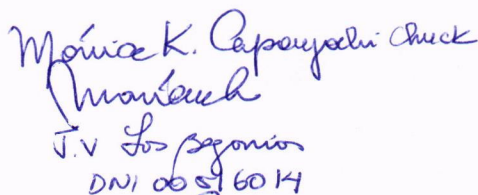 Mónica K. Capayachi Chuck
J.V Los Begonias
DNI 00516014